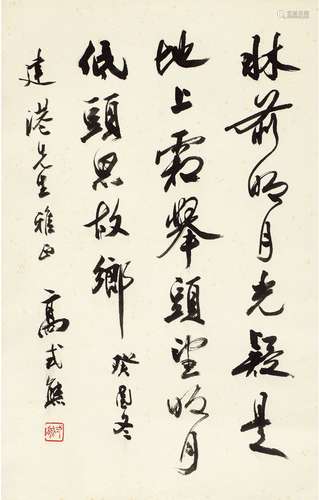 牀前明月光疑是
地上霜舉頭望明月
低頭思故鄉 癸酉冬
建港先生雅正 高式熊